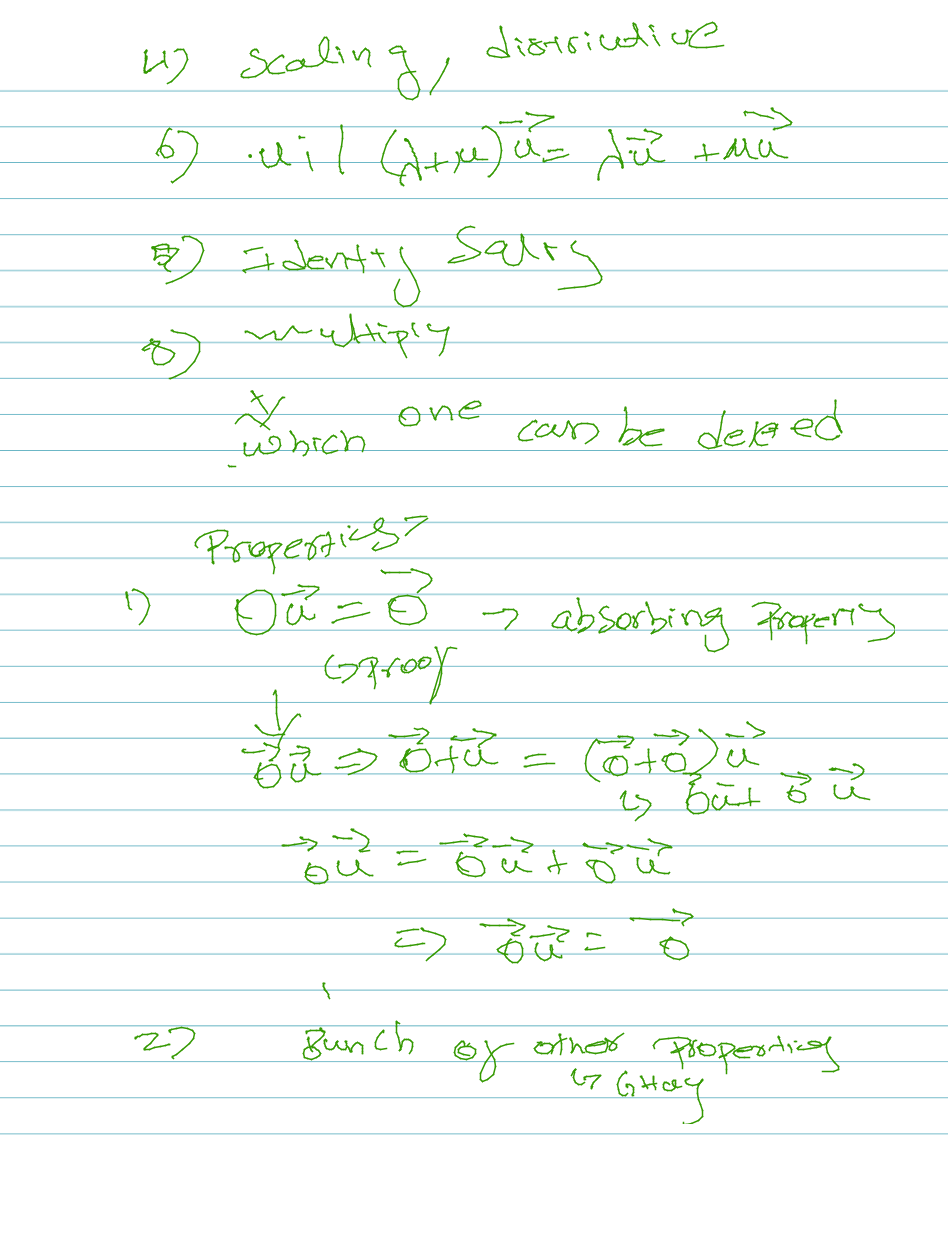 4) Scaling, distributive
6) (λ+μ)u⃗ = λu⃗ + μu⃗
7) Identity
8) multiply
which one can be deleted
Properties
1) 0u⃗ = 0⃗ → absorbing Property
↳ proof
0⃗u⃗ ⇒ 0⃗+u⃗ = (0⃗+0⃗)u⃗
↳ 0⃗u⃗+ 0⃗ u⃗
0⃗u⃗ = 0⃗u⃗ + 0⃗u⃗
⇒ 0⃗u⃗ = 0⃗
2) Bunch of other Properties
↳